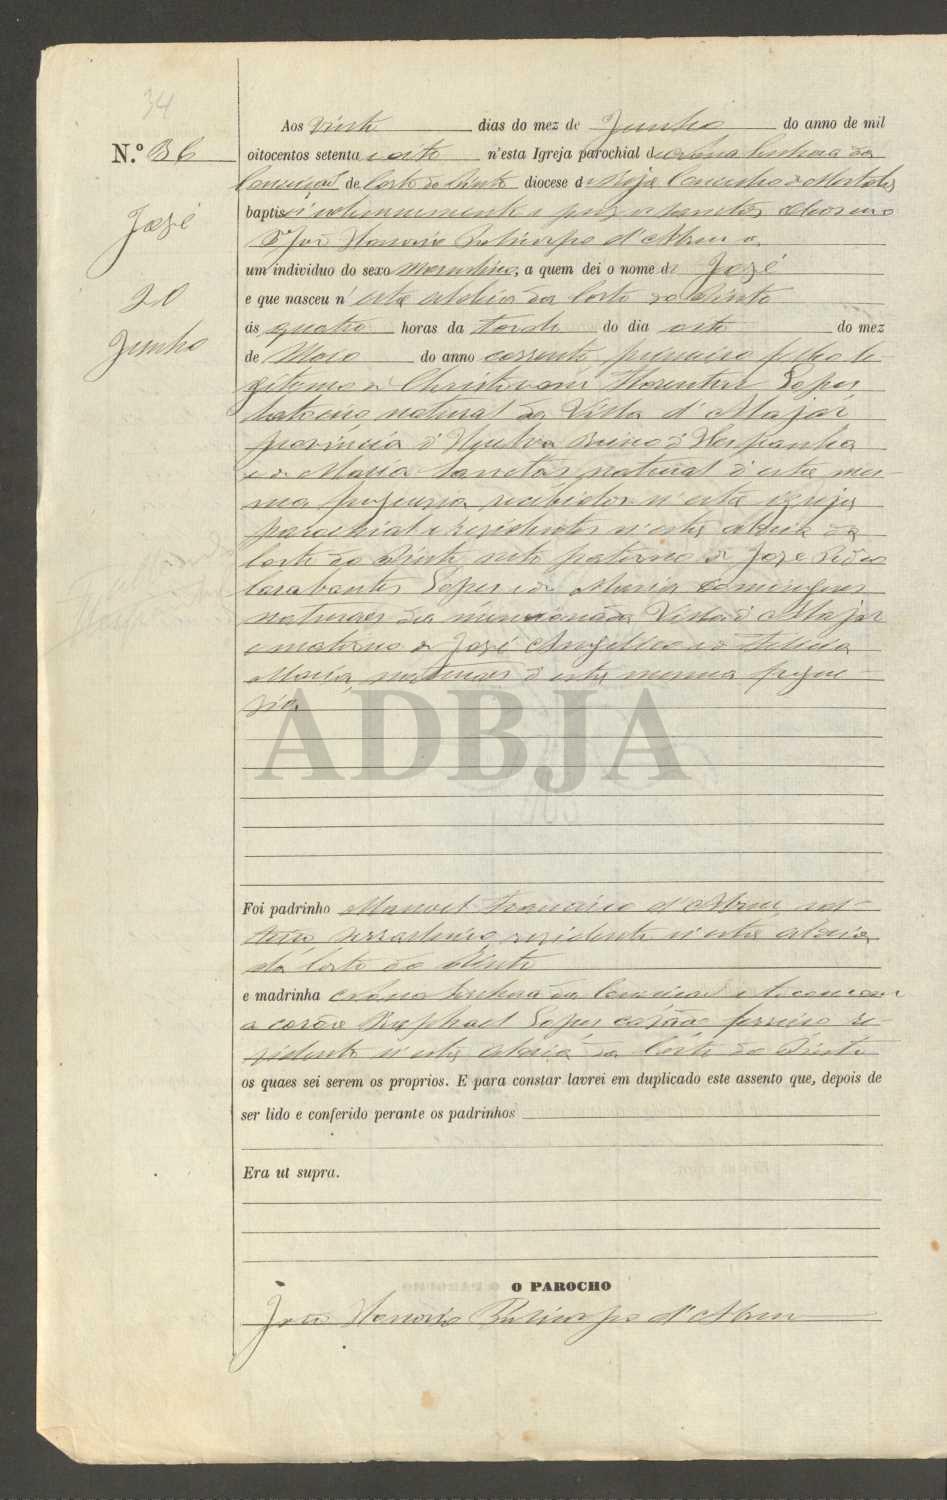 34
N.º 36
José
20
Junho
Aos vinte dias do mez de Junho do anno de mil
oitocentos setenta e oito n'esta Igreja parochial de Nossa Senhora da
Conceição de Corte do Pinto diocese de Beja Concelho de Mertola
baptisei solemnemente e puz os santos oleos eu
João Honorio Policarpo d'Abreu a
um individuo do sexo masculino, a quem dei o nome de José
e que nasceu n'esta aldeia da Corte do Pinto
ás quatro horas da tarde do dia oito do mez
de Maio do anno corrente, primeiro filho le-
gitimo de Christovam Florentin Lopes
natural da Villa d'Alajar
provincia d'Huelva Reino d'Hespanha
e de Maria Santos natural d'esta mes-
ma freguezia recebidos n'esta igreja
parochial e residentes n'esta aldeia da
Corte do Pinto neto paterno de José Pedro
Lopes e de Maria Domingues
naturaes da mencionada Villa d'Alajar
e materno de José Angelico e de Felicia
Maria, naturaes d'esta mesma fregue-
zia.
ADBJA
Foi padrinho Manoel Francisco d'Abreu sol-
teiro residente n'esta aldeia
da Corte do Pinto
e madrinha Nossa Senhora da Conceição e tocou com
a corôa Raphael Lopes ferreiro re-
zidente n'esta aldeia da Corte do Pinto
os quaes sei serem os proprios. E para constar lavrei em duplicado este assento que, depois de
ser lido e conferido perante os padrinhos
Era ut supra.
O PAROCHO
João Honorio Policarpo d'Abreu